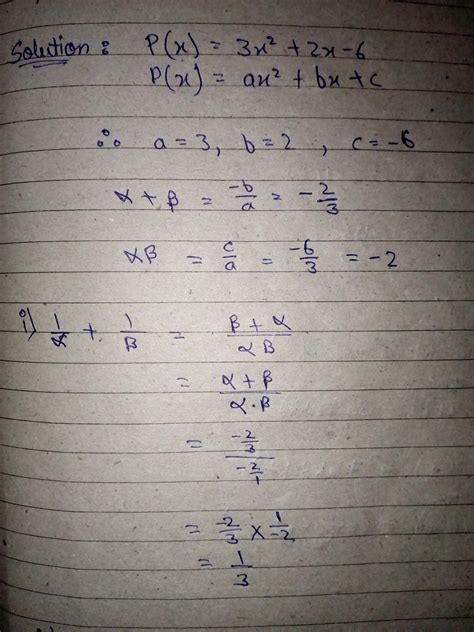 Solution : P(x) = 3x² + 2x - 6
P(x) = ax² + bx + c
∴ a = 3, b = 2 , c = -6
α + β = -b/a = -2/3
αβ = c/a = -6/3 = -2
i) 1/α + 1/β = β + α / αβ
= α + β / α·β
= -2/3 / -2/1
= -2/3 × 1/-2
= 1/3